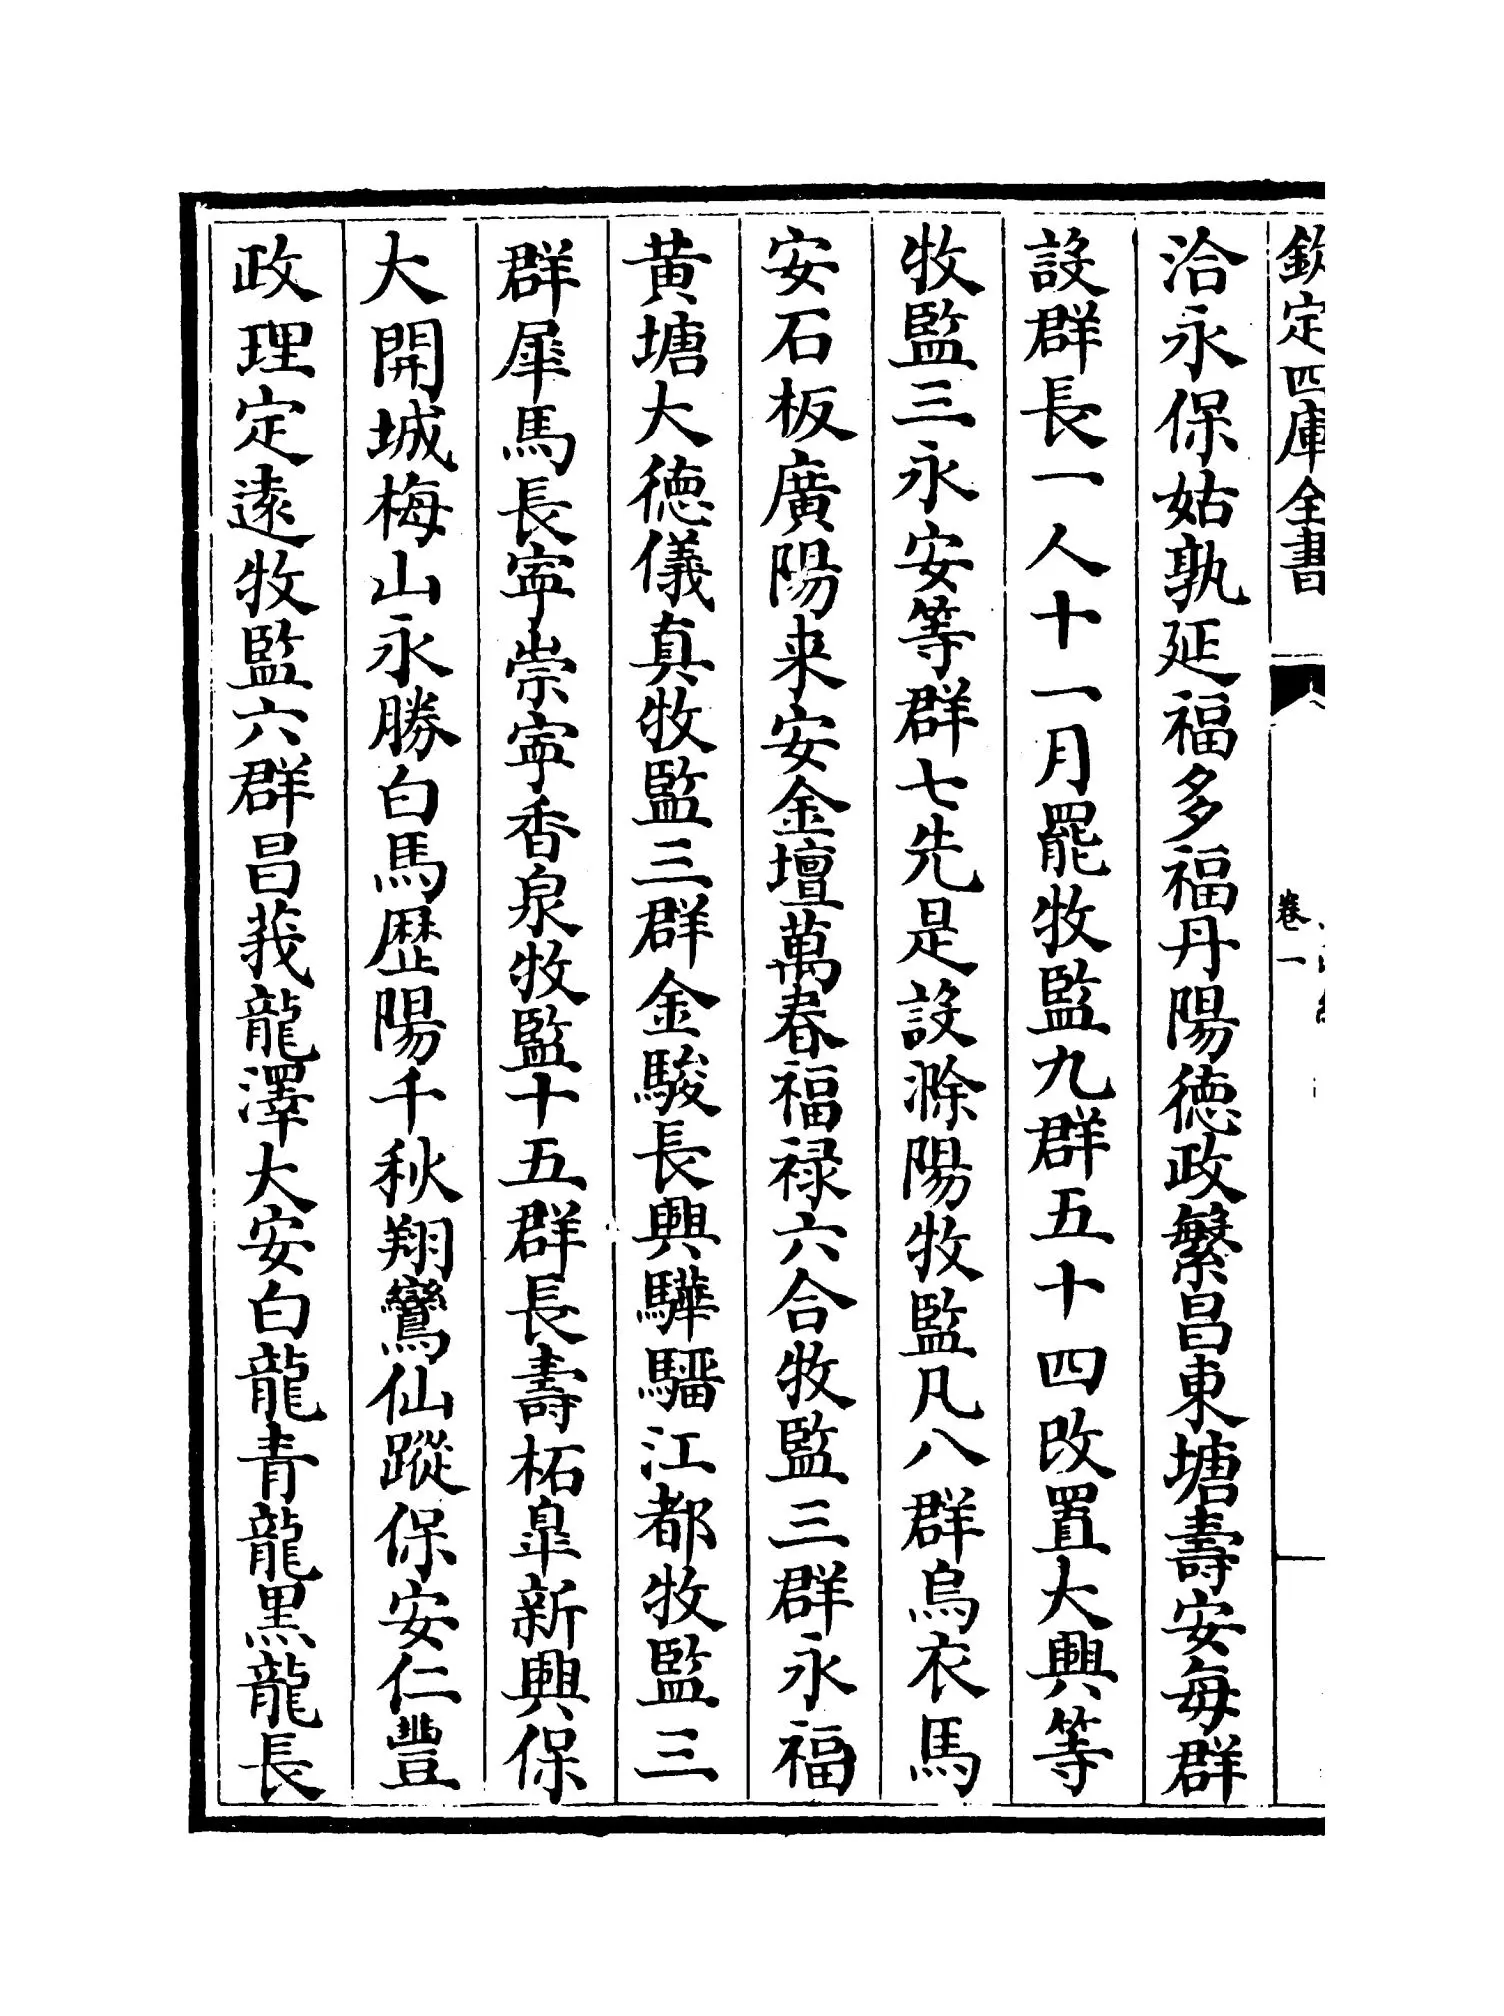 欽定四庫全書
卷一
洽永保姑孰延福多福丹陽德政繁昌東塘壽安每群
設群長一人十一月罷牧監九群五十四改置大興等
牧監三永安等群七先是設滁陽牧監凡八群烏衣馬
安石板廣陽来安金壇萬春福禄六合牧監三群永福
黄塘大德儀真牧監三群金駿長興驊騮江都牧監三
群犀馬長寕崇寕香泉牧監十五群長壽柘臯新興保
大開城梅山永勝白馬歴陽千秋翔鸞仙蹤保安仁豐
政理定逺牧監六群昌義龍澤大安白龍青龍黑龍長